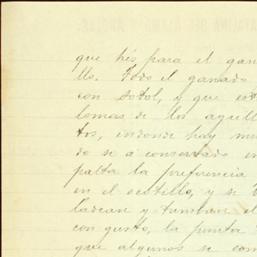 que hés para el gana
llo. Todo el ganado
con sotol, y que est
lomas de los aguill
tos, endonde hay mu
do se a conservado en
palta la preferencia
en el ocotillo, y se
ladean y tumban el
con gusto, la punta
que algunos se com